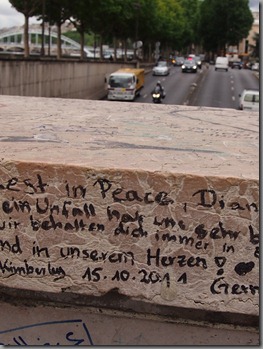 est in Peace, Dian
ein Unfall hat uns sehr b
wir behalten dich immer in
nd in unserem Herzen!
Kimberley 15.10.2011 Ger